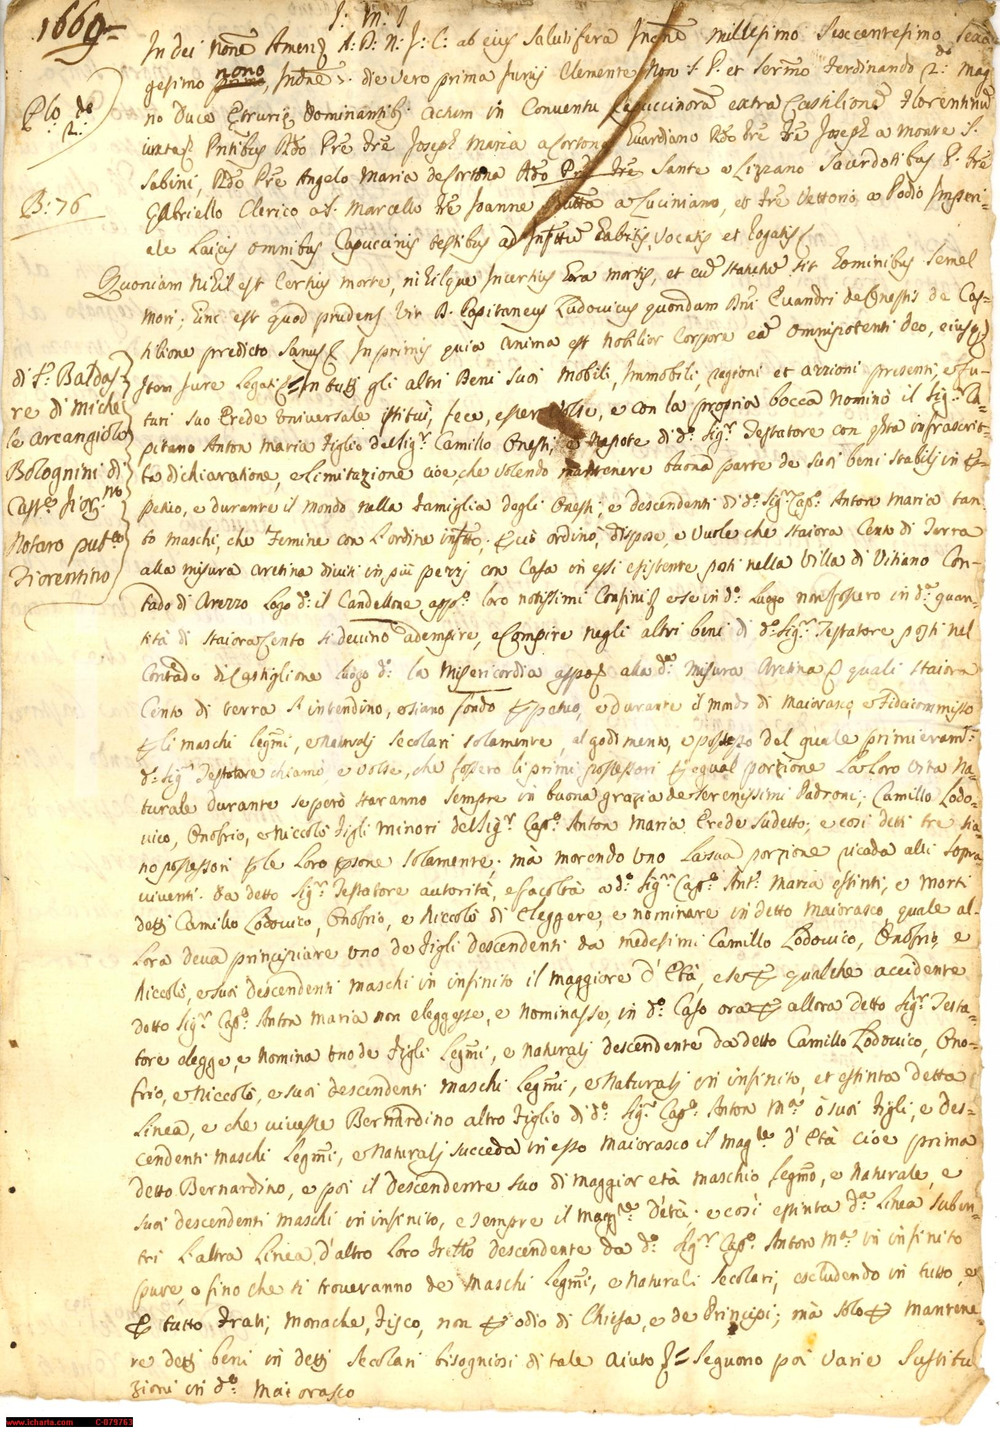 1669
J: M: J.
In Dei Nõne Amen A: D: N: J: C: ab eius salutifera Incñe Millesimo Sexcentesimo Sexa
gesimo nono, Indne 7. die vero prima Junij Clemente Non S. P. et Sermo Ferdinando 2: Mag
no Duce Etrurie Dominantib: Actum in Conventu Capuccinorũ extra Castilionẽ Florentinũ
Pntibus Rdo Pre fre Joseph Maria a Cortona Guardiano Rdo fre fre Joseph a Monte S.
Sabini, Rdo Pre Angelo Maria de Cortona Rdo Pre fre Sante a Lizzano Sacerdotibus F. fre
Gabriello Clerico a S. Marcello fre Joanne Butta a Luciniano, et fre Vettorio a Podio Imperi-
ale Laicis omnibus Capuccinis testibus ad Infttũ habitis, vocatis et rogatis
Plo: do 2:
B: 76
Quoniam nihil est certius morte, nihilque incertius hora mortis, et cũ statutũ sit hominibus semel
mori; hinc est quod prudens vir D. Capitaneus Ludovicus quondam Dni Evandri de Onestis de Cas-
tilione predicto sanus In primis quia anima est nobilior corpore eã omnipotenti Deo, eiusq
Item Jure Legati = In tutti gli altri Beni suoi mobili, immobili, ragioni et azzioni presenti, e fu-
turi suo Erede universale istituì, fece, e volse, e con la propria bocca nominò il Sigr Ca-
pitano Anton Maria figlio del Sigr Camillo Onesti, e Nepote di do Sigr Testatore con infrascrit-
ta dichiaratione, e limitazione cioè, che volendo mantenere buona parte de suoi beni stabili in per-
petuo, e durante il mondo nella famiglia degli Onesti, e descendenti di do Sigr Capo Anton Maria tan-
to maschi, che femine con l'ordine infttõ. ordinò, dispose, e vuole che staiora Cento di Terra
alla misura aretina divisi in più pezzi con Casa in essi esistente posti nella Villa di Vitiano Con-
tado di Arezzo Logo do il Candellone appo loro notissimi Confini e se in do Luogo non fossero in da quan-
tità di staiora Cento si devino adempire, e Compire negli altri beni di do Sigr Testatore posti nel
Contado di Castiglione Luogo do la Misericordia appo alla da misura aretina quali staiora
Cento di terra s'intendino, e siano fondo perpetuo, e durante il mondo di Maiorasco, e Fideicommisso
gli maschi legmi, e Naturalj secolari solamente, al godimento, e possesso del quale primieramte
do Sigr Testatore chiamò, e volse, che fossero li primi possessori egual porzione la loro vita na-
turale durante se però staranno sempre in buona grazia de Serenissimi Padroni; Camillo Lodo-
vico, Onofrio, e Niccolò figli minori del Sigr Capo Anton Maria Erede sudetto; e così detti tre sia-
no possessori le loro psone solamente; mà morendo uno la sua porzione ricada alli sopra
viventi. da detto Sigr Testatore autorità, e facoltà a do Sigr Capo Anto Maria estinti, e morti
detti Camillo Lodovico, Onofrio, e Niccolò di eleggere, e nominare in detto Maiorasco, quale al-
lora deva principiare uno de figli descendenti da medesimi Camillo Lodovico, Onofrio, e
Niccolò, e suoi descendenti maschi in infinito il maggiore d'Età, e se qualche accidente
detto Sigr Capo Anton Maria non eleggesse, e nominasse, in do Caso ora allora detto Sigr Testa-
tore elegge, e nomina uno de figli Legmi, e naturalj descendente da detto Camillo Lodovico, Ono-
frio, e Niccolò, e suoi descendenti maschi Legmi, e Naturalj in infinito, et estinta detta
Linea, e che vivesse Bernardino altro figlio di do Sigr Capo Anton Ma ò suoi figli, e des-
cendenti maschi Legmi, e Naturalj succeda in esso maiorasco il magre d'Età cioè prima
detto Bernardino, e poi il descendente suo di maggior età maschio Legmo, e naturale, e
suoi descendenti maschi in infinito, e sempre il magre d'età, e così estinta da Linea suben-
tri l'altra Linea d'altro loro fratello descendente da do Sigr Capo Anton Ma in infinito
pure, o fino che si troveranno de maschi Legmi, e Naturali secolari, escludendo in tutto, e
tutto frati, monache, fisco, non odio di Chiesa, e de Principi; mà solo mantene
re detti beni in detti secolari bisogniosi di tale aiuto = Seguono poi varie sustitu
zioni in do Maiorasco
di Sr Baldas-
re di Miche
le Arcangiolo
Bolognini di
Casto Fiornno
Notaro pubco
Fiorentino
www.icharta.com C-079763